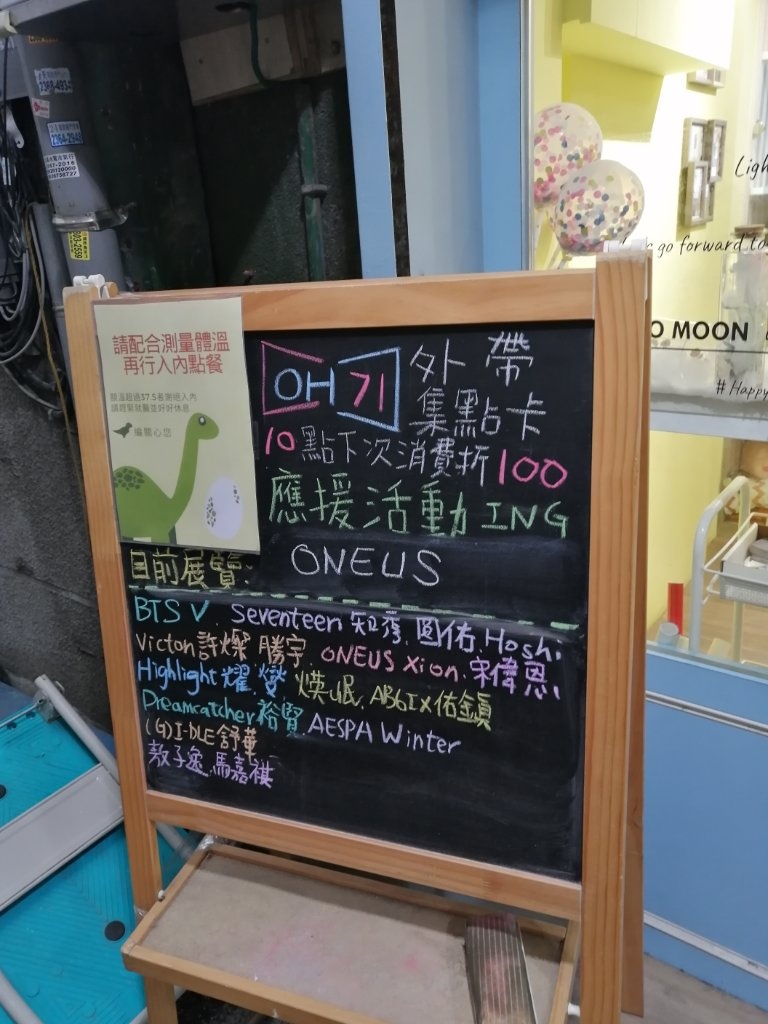 請配合測量體溫
再行入內點餐
額溫超過37.5者謝絕入內
請趕緊就醫並好好休息
編關心您
OH기 外帶
集點卡
10點下次消費折100
應援活動ING
目前展覽: ONEUS
BTS V Seventeen 知秀 圓佑 Hoshi
Victon 許燦 勝宇 ONEUS Xion 宋偉恩
Highlight 耀燮 煐岷 AB6IX佑鎮
Dreamcatcher 裕賢 AESPA Winter
(G)I-DLE 舒華
敖子逸 馬嘉祺
Ligh
go forward to
O MOON
#Happy
2364-2948